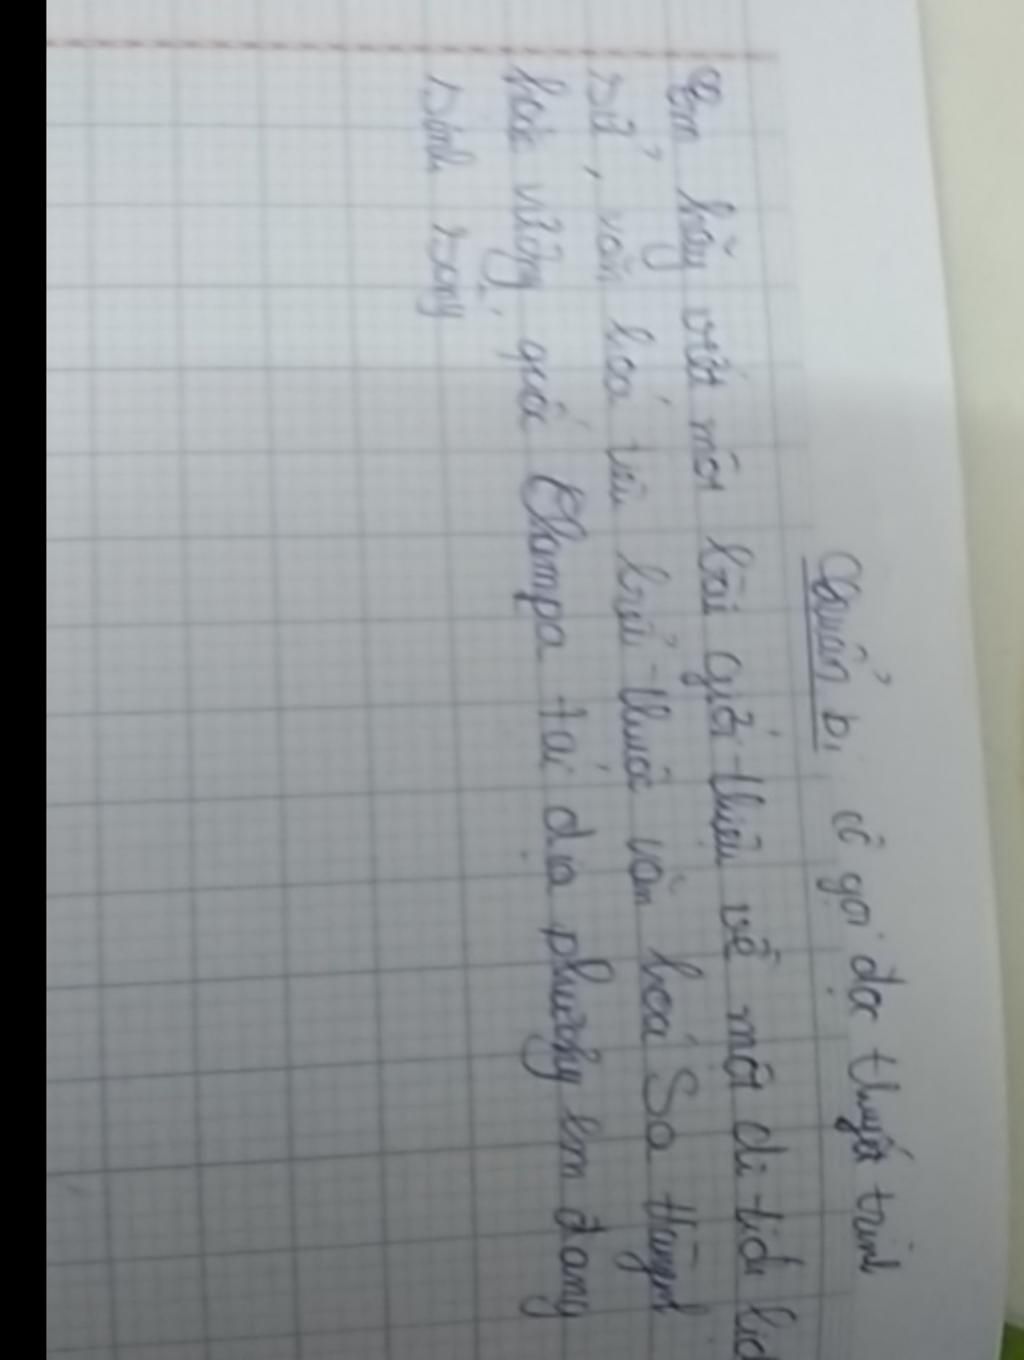 Chuẩn bị cô gọi đọc thuyết trình
Em hãy viết một bài giới thiệu về một di tích lịch
sử, văn hoá tiêu biểu thuộc văn hoá Sa Huỳnh
hoặc vương quốc Chămpa tại địa phương em đang
sinh sống